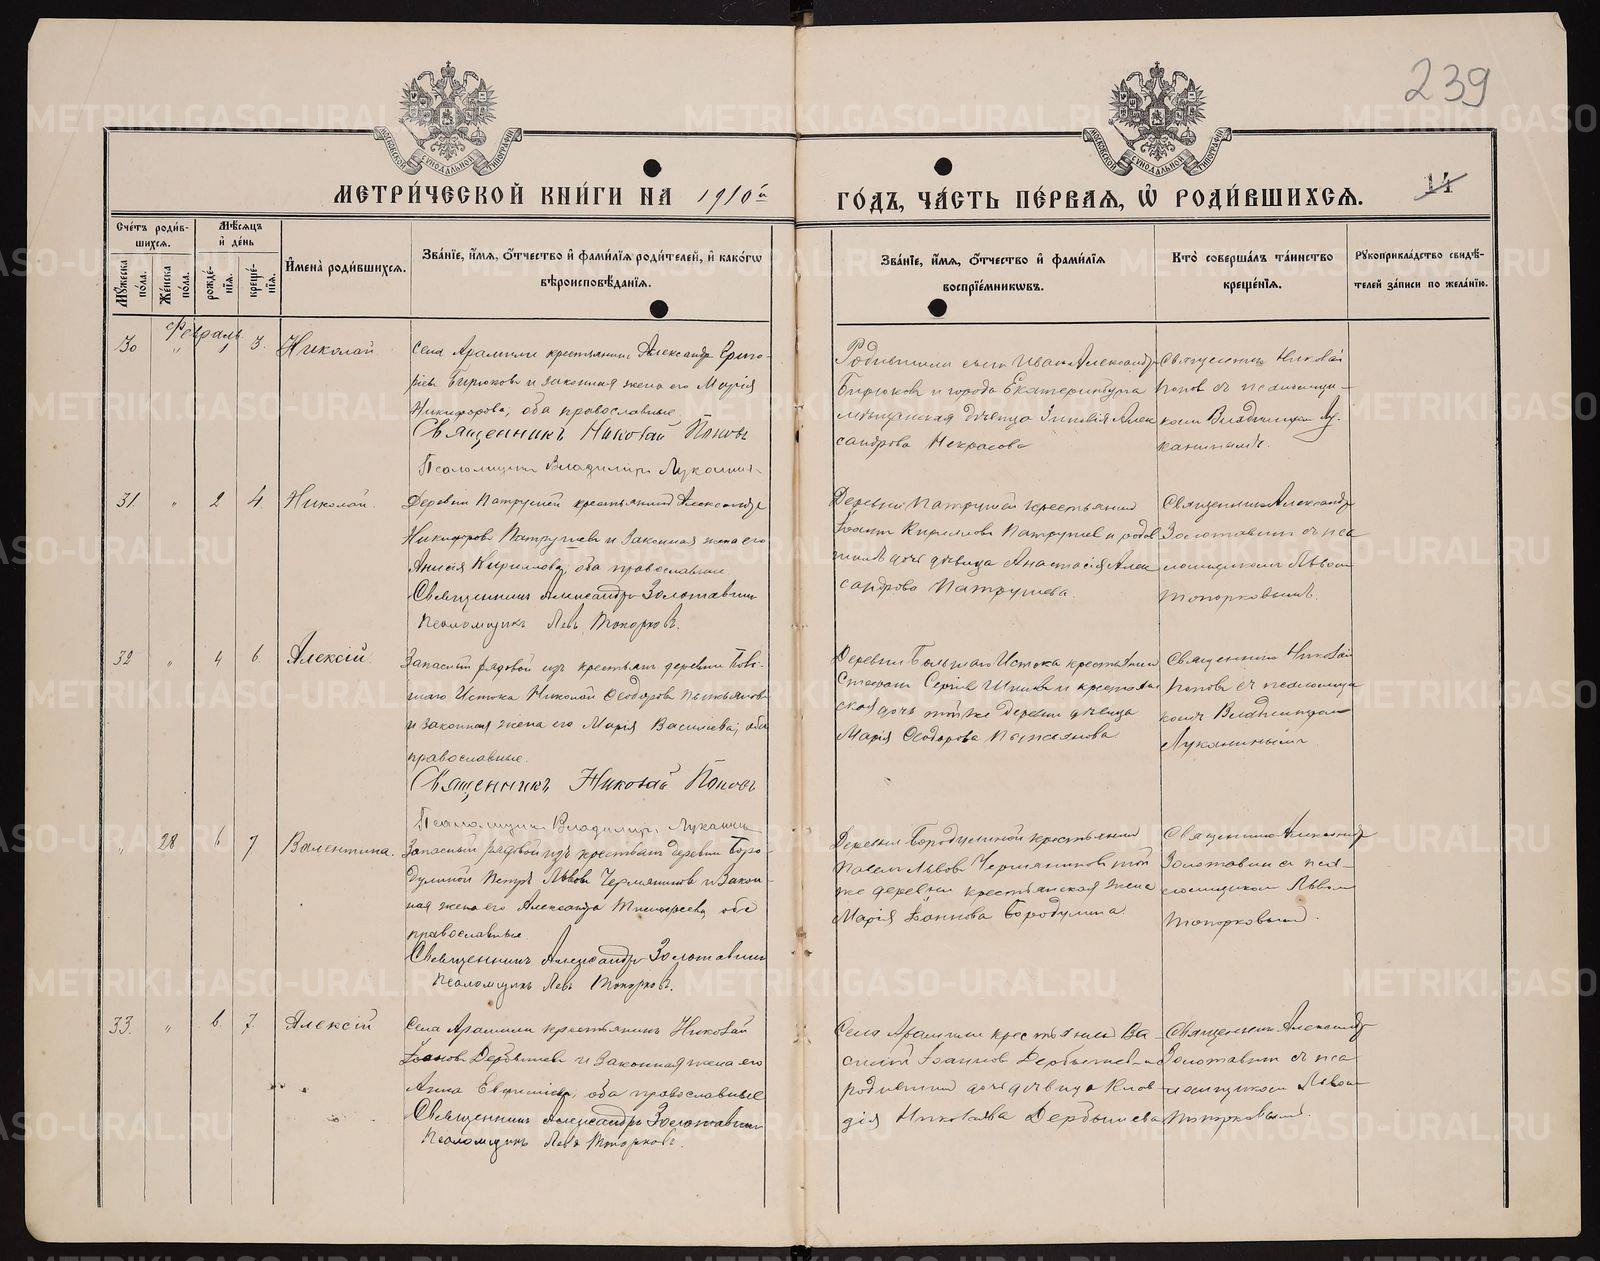 239
МЕТРИ́ЧЕСКОЙ КНИ́ГИ НА 1910й ГО́ДЪ, ЧА́СТЬ ПЕ́РВАЯ, Ѡ РОДИ́ВШИХСЯ.
14
Сче́тъ роди́в-
шихся.
Му́жеска по́ла.
Же́нска по́ла.
Мѣ́сяцъ
и де́нь
рожде́-
нїя.
креще́-
нїя.
Имена̀ роди́вшихся.
Зва́нїе, и́мя, о́тчество и фами́лїя роди́телей, и како́гѡ
вѣроисповѣ́данїя.
Зва́нїе, и́мя, о́тчество и фами́лїя
воспрїе́мниковъ.
Кто̀ соверша́лъ та́инство
креще́нїя.
Рꙋкоприкла́дство свидѣ́-
телей за́писи по жела́нїю.
Февраль
30 " 1 3. Николай
Села Арамили крестьянинъ Александр Григо-
рiев Бирюков и законная жена его Марiя
Никифорова, оба православные
Священникъ Николай Попов
Псаломщикъ Владимiръ Луканин
Родившаго сын Иван Александр
Бирюков и города Екатеринбурга
мѣщанская дѣвица Зиновiя Алек
сандрова Некрасова
Священник Николай
Попов съ псаломщи-
ком Владимiром Лу-
каниным.
31. " 2 4. Николай.
Деревни Патрушей крестьянин Александр
Никифоров Патрушев и законная жена его
Анисiя Кириллова, оба православные
Священникъ Александръ Золотавин
Псаломщикъ Левъ Топорковъ.
Деревни Патрушей крестьянин
Iоанн Кириллов Патрушев и родив
шаго дочь дѣвица Анастасiя Алек
сандрова Патрушева.
Священник Александр
Золотавин съ пса
ломщиком Львом
Топорковым.
32 " 4 6 Алексiй.
Запасный рядовой изъ крестьян деревни Боль-
шаго Истока Николай Ѳеодоров Пьянков
и законная жена его Марiя Васильева, оба
православные.
Священникъ Николай Попов
Псаломщикъ Владимiръ Луканин
Деревни Большаго Истока крестьянин
Стефан Сергiев и крестьян
ская дочь той же деревни дѣвица
Марiя Ѳеодорова
Священник Николай
Попов съ псаломщи
ком Владимiром
Луканиным
" 28 6 7 Валентина.
Запасный рядовой изъ крестьян деревни Боро-
дулиной Петръ Львов Чермянинов и закон-
ная жена его Александра Тимофеева, оба
православные
Священникъ Александръ Золотавин
Псаломщикъ Левъ Топорков.
Деревни Бородулиной крестьянин
Павел Львов Чермянинов той
же деревни крестьянская жена
Марiя Iоаннова Бородулина
Священник Александр
Золотавин с пса-
ломщиком Львом
Топорковым.
33. " 6. 7. Алексiй
Села Арамили крестьянинъ Николай
Iоанов Дербышев и законная жена его
Анна Евфимiева, оба православные
Священникъ Александръ Золотавин
Псаломщикъ Левъ Топорковъ.
Села Арамили крестьянин Ва-
силiй Iоаннов Дербышев и
родившаго дочь дѣвица Клав
дiя Николаева Дербышева
Священник Александр
Золотавин съ пса
ломщиком Львом
Топорковым.
METRIKI.GASO-URAL.RU